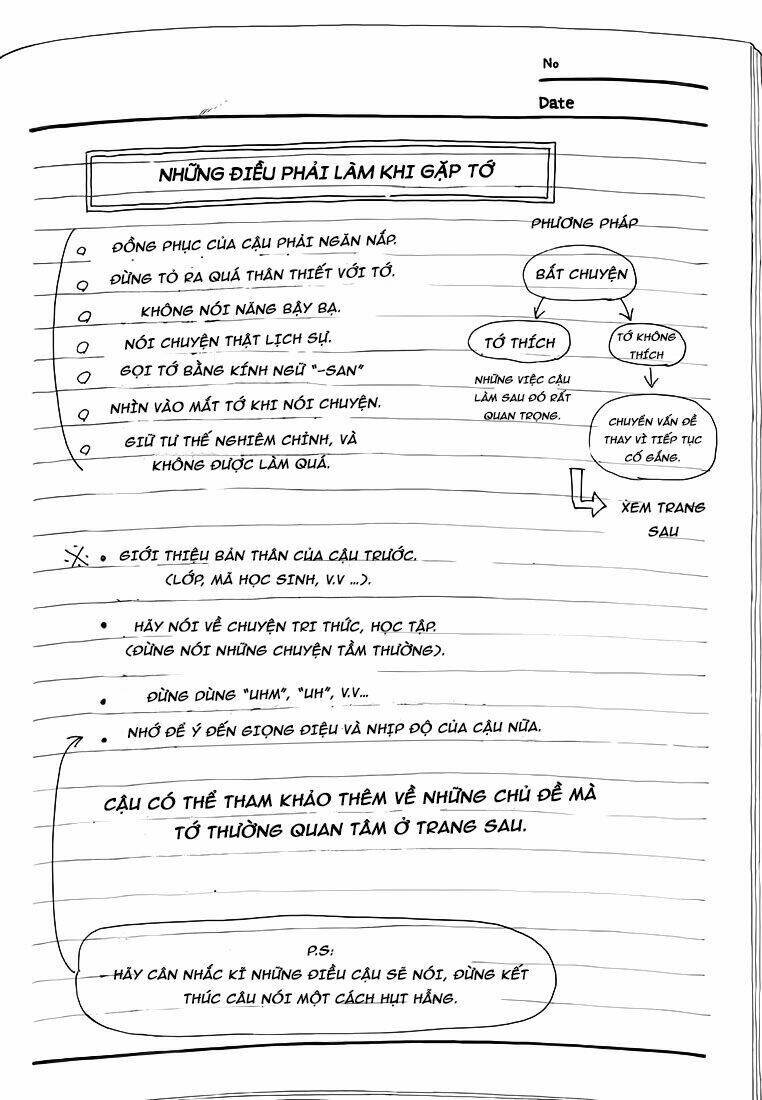 No
Date
NHỮNG ĐIỀU PHẢI LÀM KHI GẶP TỚ
ĐỒNG PHỤC CỦA CẬU PHẢI NGĂN NẮP.
ĐỪNG TỎ RA QUÁ THÂN THIẾT VỚI TỚ.
KHÔNG NÓI NĂNG BẬY BẠ.
NÓI CHUYỆN THẬT LỊCH SỰ.
GỌI TỚ BẰNG KÍNH NGỮ "-SAN"
NHÌN VÀO MẮT TỚ KHI NÓI CHUYỆN.
GIỮ TƯ THẾ NGHIÊM CHỈNH, VÀ
KHÔNG ĐƯỢC LÀM QUÁ.
PHƯƠNG PHÁP
BẮT CHUYỆN
TỚ THÍCH
NHỮNG VIỆC CẬU
LÀM SAU ĐÓ RẤT
QUAN TRỌNG.
TỚ KHÔNG
THÍCH
CHUYỂN VẤN ĐỀ
THAY VÌ TIẾP TỤC
CỐ GẮNG.
XEM TRANG
SAU
※ • GIỚI THIỆU BẢN THÂN CỦA CẬU TRƯỚC.
(LỚP, MÃ HỌC SINH, V.V ...).
• HÃY NÓI VỀ CHUYỆN TRI THỨC, HỌC TẬP.
(ĐỪNG NÓI NHỮNG CHUYỆN TẦM THƯỜNG).
• ĐỪNG DÙNG "UHM", "UH", V.V...
• NHỚ ĐỂ Ý ĐẾN GIỌNG ĐIỆU VÀ NHỊP ĐỘ CỦA CẬU NỮA.
CẬU CÓ THỂ THAM KHẢO THÊM VỀ NHỮNG CHỦ ĐỀ MÀ
TỚ THƯỜNG QUAN TÂM Ở TRANG SAU.
P.S:
- HÃY CÂN NHẮC KĨ NHỮNG ĐIỀU CẬU SẼ NÓI, ĐỪNG KẾT
THÚC CÂU NÓI MỘT CÁCH HỤT HẪNG.